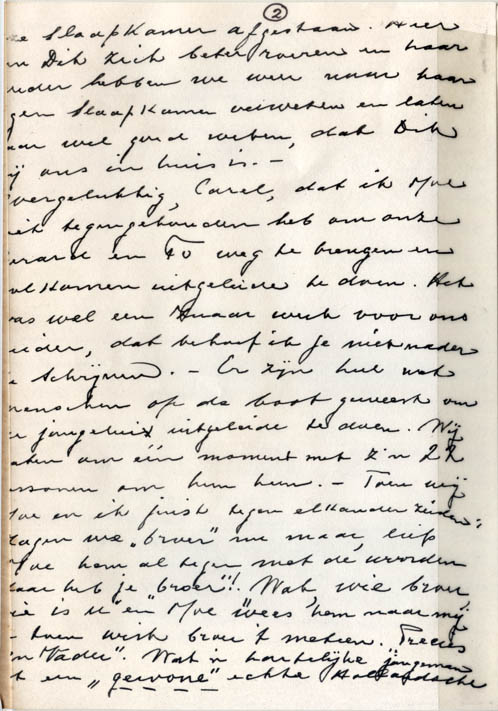 2
ze slaapkamer afgestaan. Hier
n Dik zich beter roeren en naar
uder hebben we weer naar haar
gen slaapkamer verwezen en laten
aar wel goed weten, dat Dik
ij ons in huis is. -
vergelukkig, Carel, dat ik Moe
iet tegengehouden heb om onze
erard en To weg te brengen en
el komen uitgeleide te doen. Het
as wel een zwaar werk voor ons
ieder, dat behoef ik je niet nader
e schrijven. - Er zijn heel wat
menschen op de boot geweest om
e jongelui uitgeleide te doen. Wij
aten om één moment met z'n 22
ersonen om hem heen. - Toen wij
oe en ik juist tegen elkander zeiden:
zagen we "broer" nu maar, liep
Moe hem al tegen met de woorden
aar heb je "broer"! Wat, wie broer
ie is u" en Moe wees hem naar mij
- toen wist broer 't meteen. "Precies
'n Vader". Wat 'n hartelijke jongeman
t een "gewone" echte Hollandsche